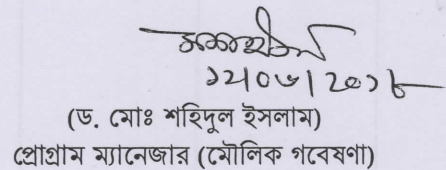 ১২|০৬|২০১৮
(ড. মোঃ শহিদুল ইসলাম)
প্রোগ্রাম ম্যানেজার (মৌলিক গবেষণা)